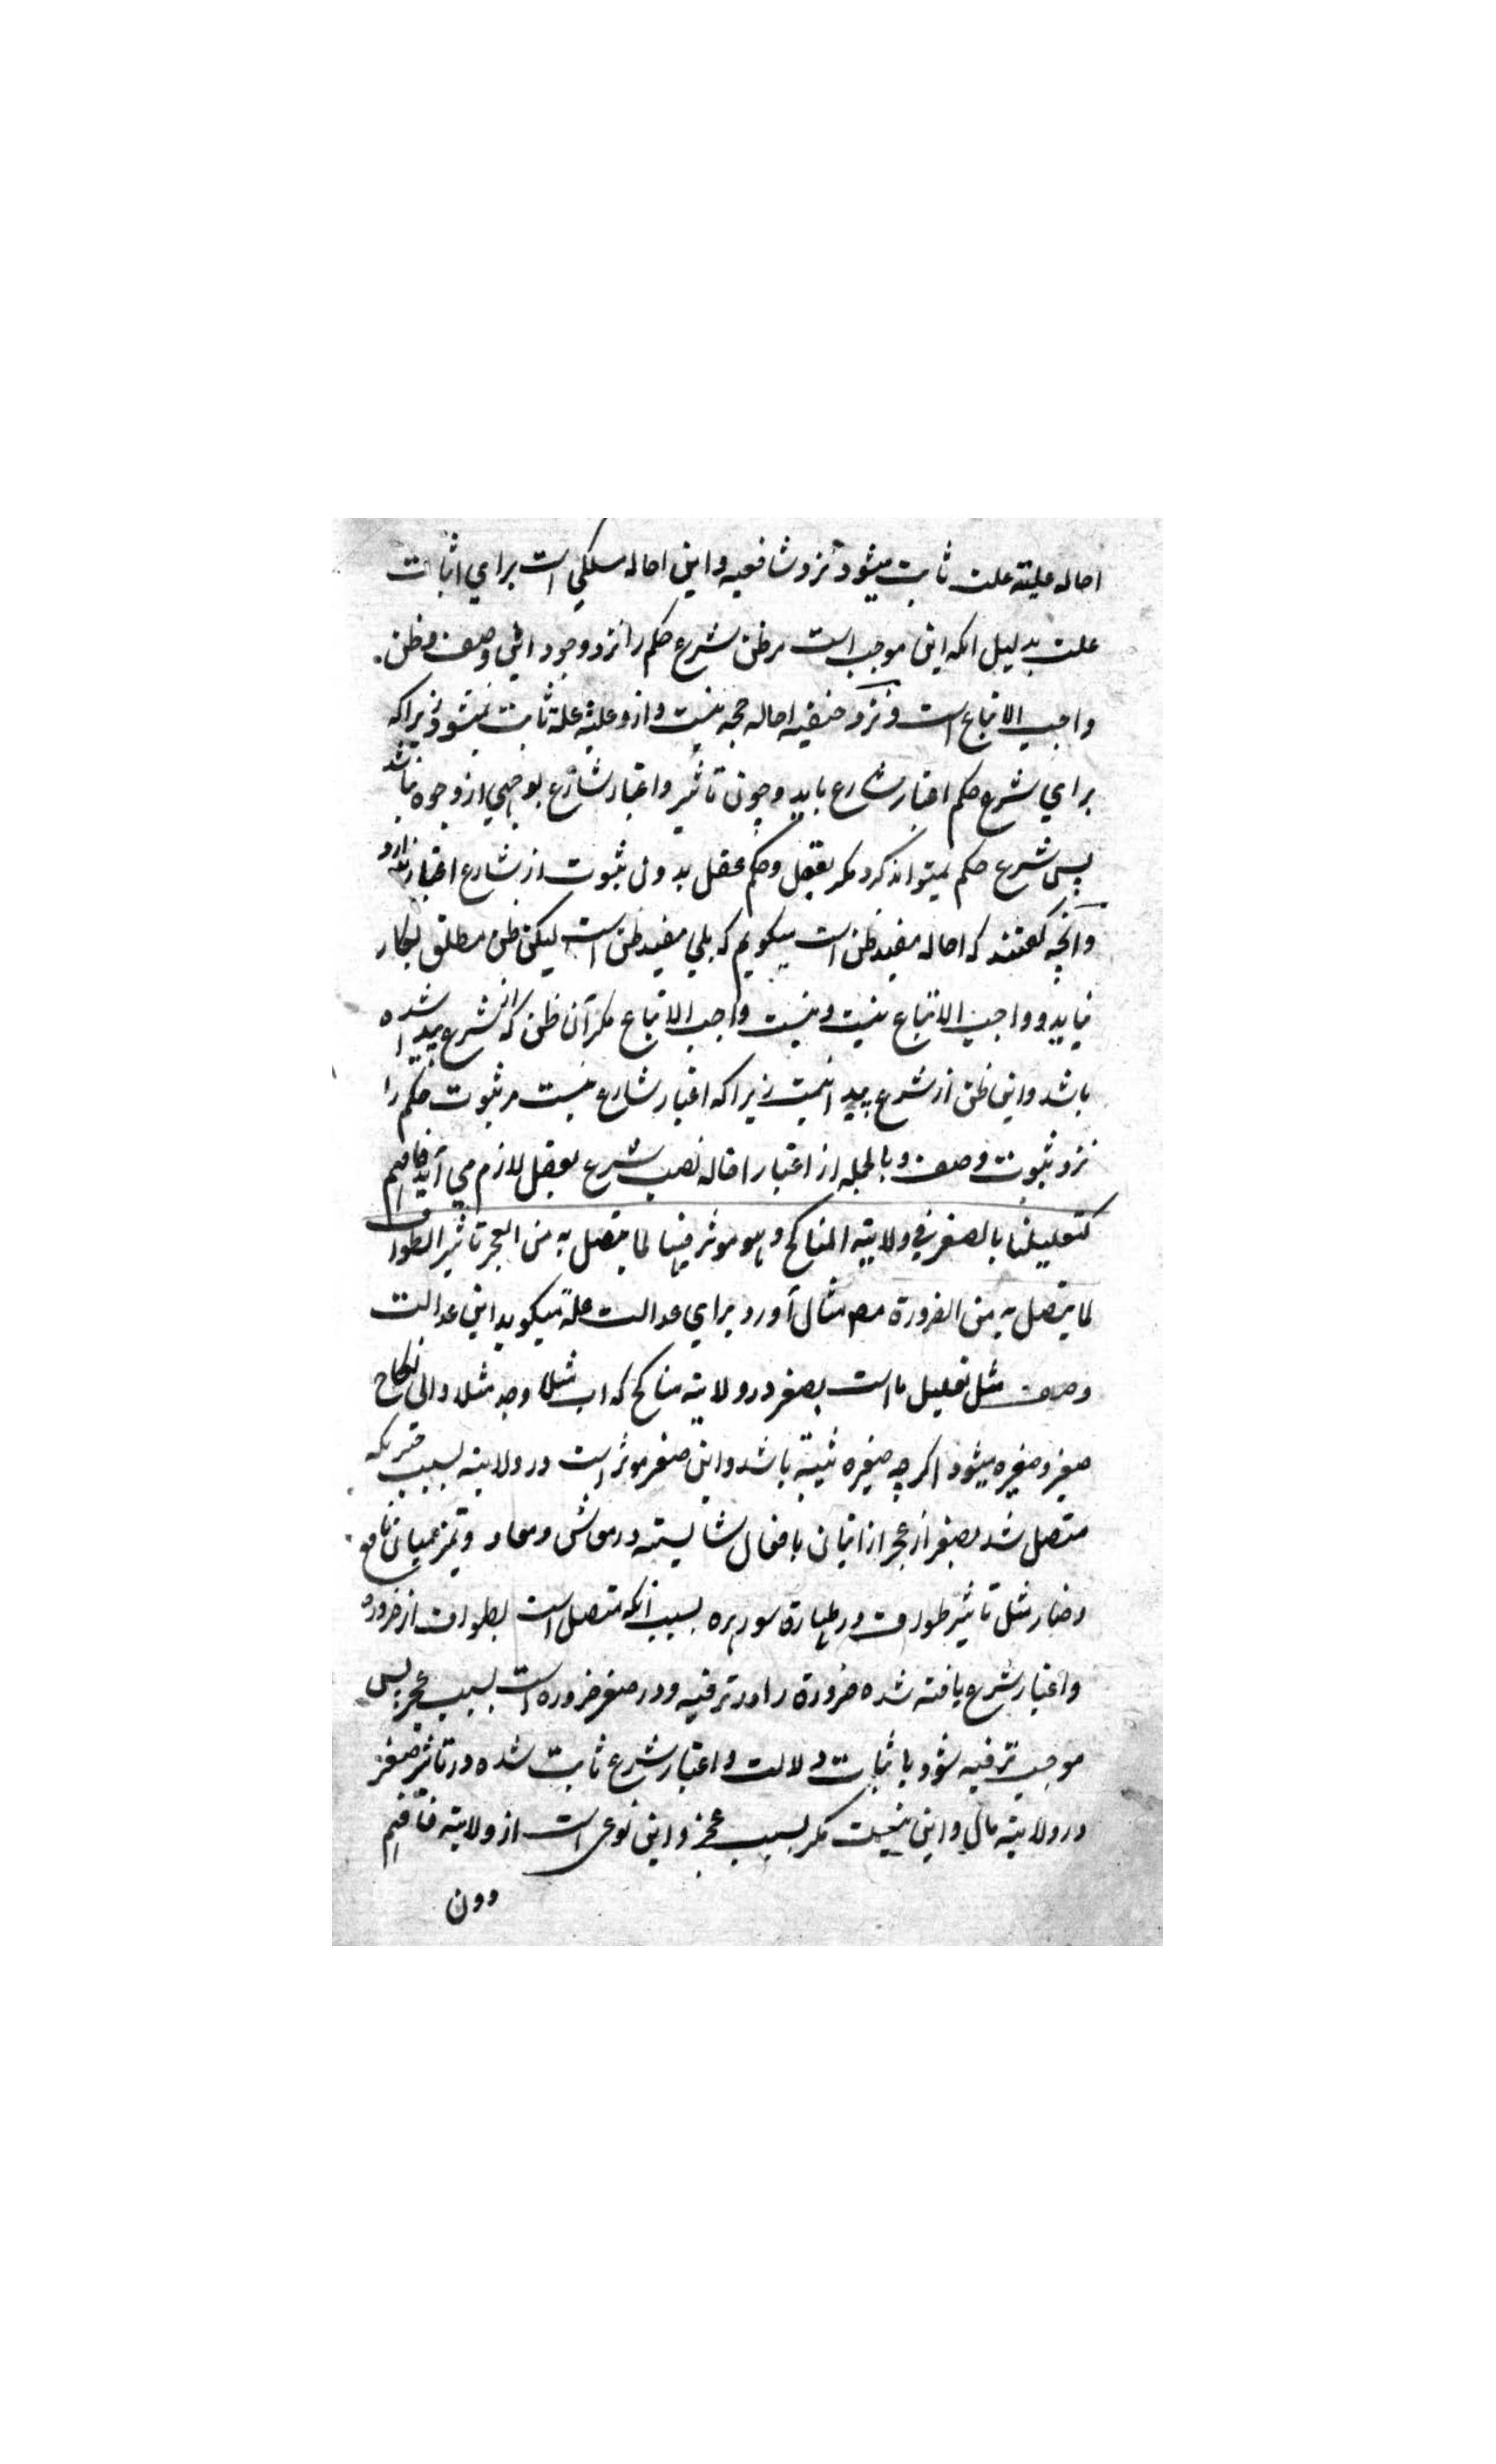 احاله علیته علت ثابت میشود نزد شافعیه و این احاله مسلکی است برای اثبات
علت بدلیل انکه این موجب است مر ظن شرع حکم را نزد وجود این وصف و ظن
واجب الاتباع است و نزد حنفیه احاله حجه نیست و ازو علیته علة ثابت نمیشود زیراکه
برای شرع حکم اعتبار شارع باید و چون تاثیر و اعتبار شارع بوجهی از وجوه نباشد
پس شرع حکم نمیتواند کرد مکر بعقل و حکم عقل بدون ثبوت از شارع اعتبار ندارد
و آنچه کفتند که احاله مفید ظن است میکویم که بلی مفید ظن است لیکن ظن مطلق بکار
نیاید و واجب الاتباع نیست و نیست واجب الاتباع مکر آن ظن که از شرع پیدا شده
باشد و این ظن از شرع پیدا نیست زیراکه اعتبار شارع نیست مر ثبوت حکم را
نزد ثبوت وصف و بالجمله از اعتبار احاله نصب شرع بعقل لازم می آید فافهم
کتعلیلنا بالصغر فی ولایته المناکح و هو موثر فیها لما یتصل به من العجز تاثیر الطواف
لما یتصل به من الضرورة مص مثال آورد برای عدالت علة میکوید این عدالت
وصف مثل تعلیل ما است بصغر در ولایته مناکح که اب مثلا وجد مثلا والی نکاح
صغیر و صغیره میشود اکرچه صغیره ثیبته باشد و این صغر موثر است در ولایته بسبب چیزیکه
متصل شد بصغر از عجز از اتیان بافعال شایسته در معاش و معاد و تمیز میان نافع
و ضار مثل تاثیر طواف در طهارة سور هره بسبب انکه متصل است بطواف از ضروره
و اعتبار شرع یافته شده ضرورة را در ترفیه و در صغر ضروره است بسبب عجز پس
موجب ترفیه شود باثبات ولالت و اعتبار شرع ثابت شده در تاثیر صغر
در ولایته مال و این نیست مکر بسبب عجز و این نوعی است از ولایته فافهم
دون